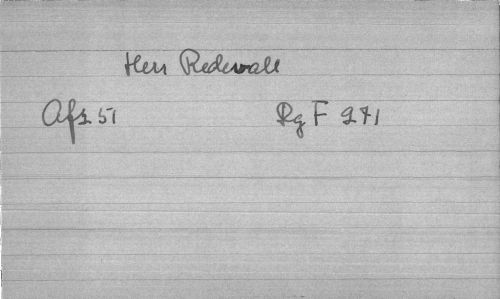 Herr Redewall
Afz 51 Rg F 271